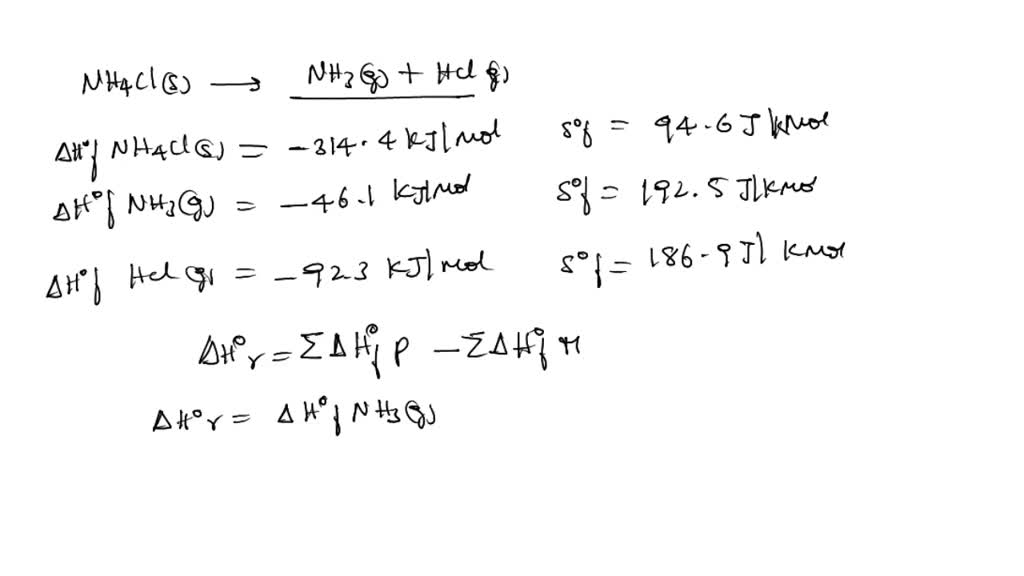 NH4Cl(s) → NH3(g) + HCl(g)
ΔH°f NH4Cl(s) = -314.4 KJ/mol S°f = 94.6 J KMol
ΔH°f NH3(g) = -46.1 KJ/Mol S°f = 192.5 J/KMol
ΔH°f HCl(g) = -923 KJ/mol S°f = 186-9 J/ KMol
ΔH°r = ΣΔH°f P - ΣΔH°f r
ΔH°r = ΔH°f NH3(g)